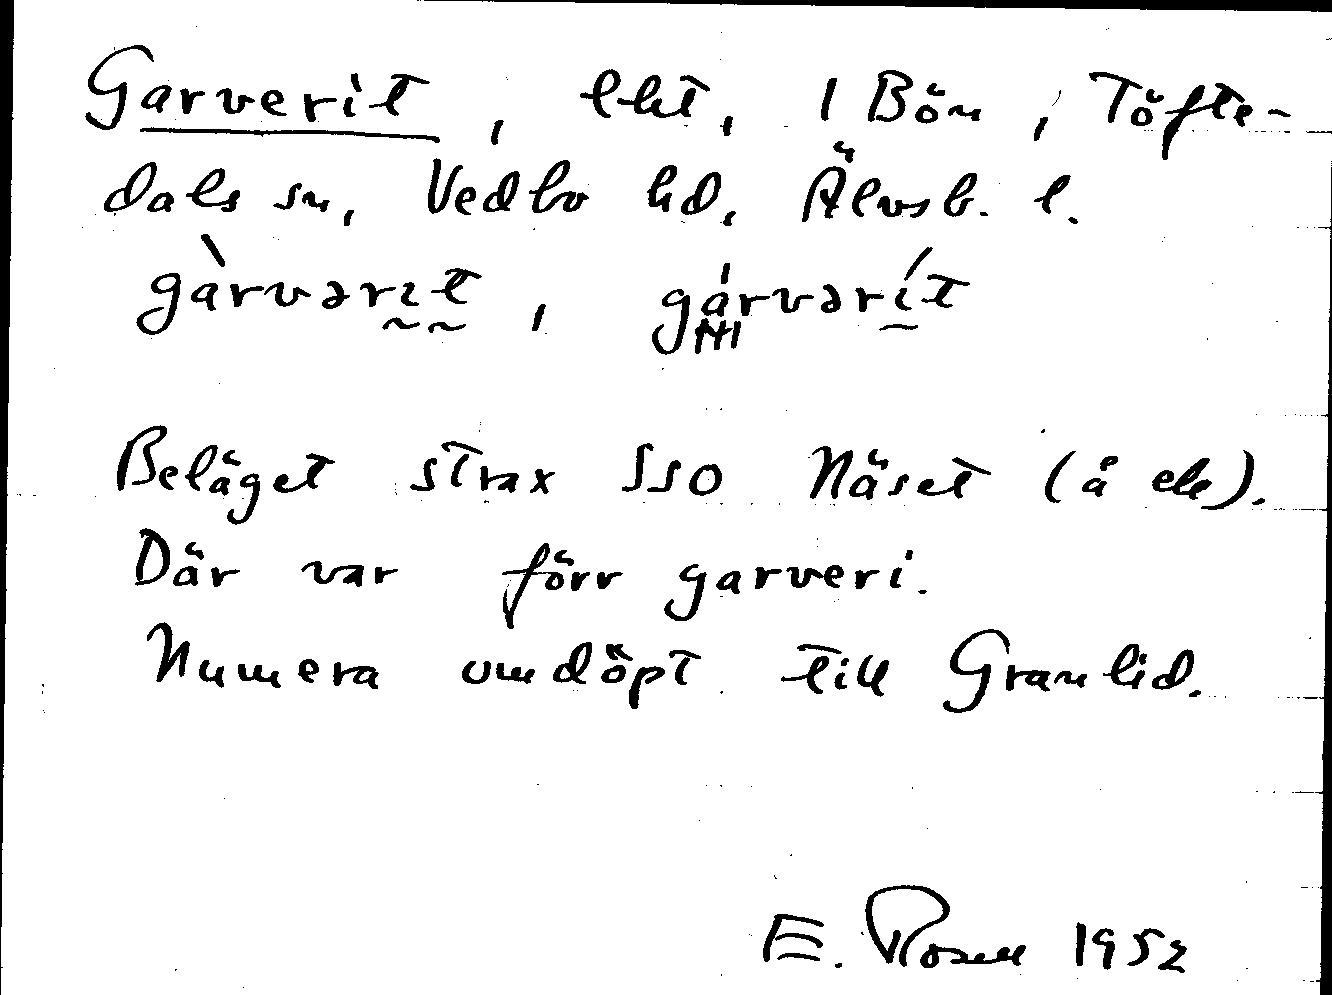 Garverit, lht, 1 Bön, Töfte-
dals sn, Vedbo hd, Älvsb. l.
gàrvərɪt, gárvərít
Beläget strax SSO Näset (å ek).
Där var förr garveri.
Numera omdöpt till Granlid.
E. Rosell 1952